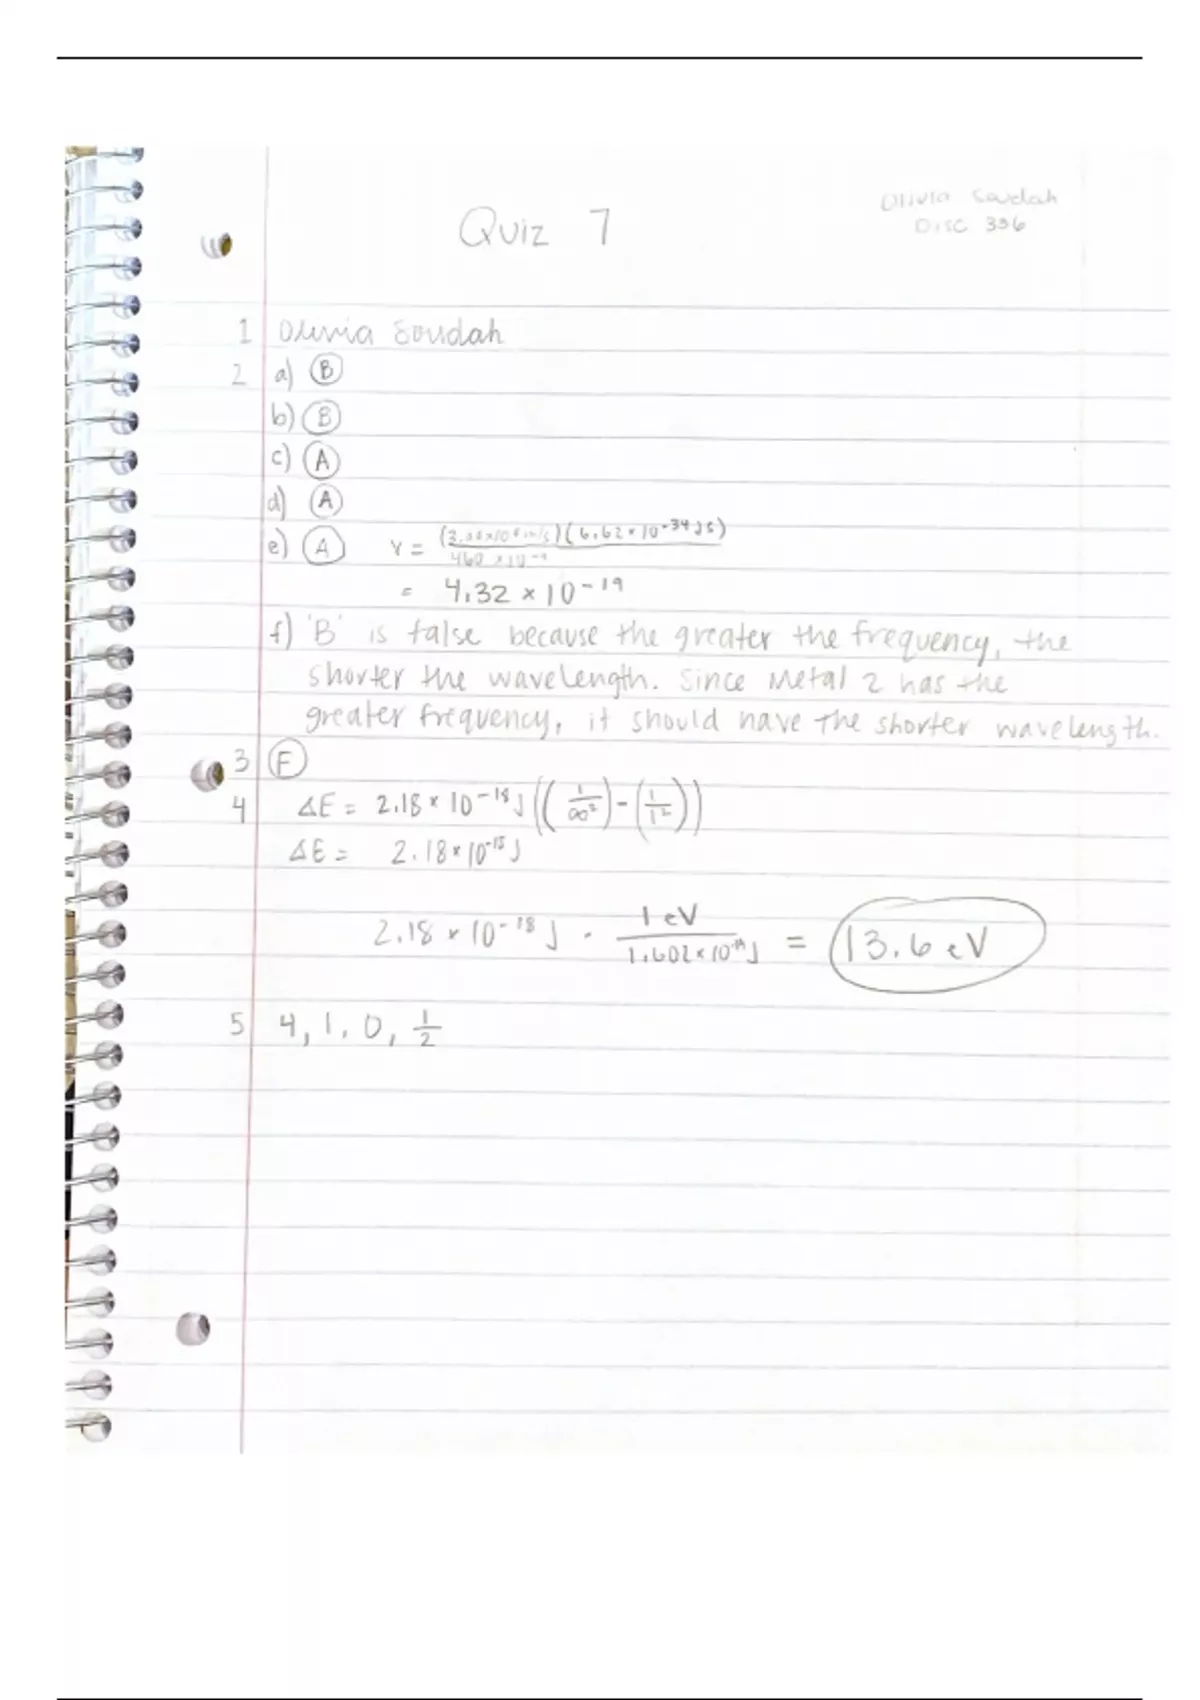 Olivia Soudah
Disc 336
Quiz 7
1 Olivia Soudah
2 a) B
b) B
c) A
d) A
e) A v = (3.00x10^8 m/s)(6.62 x 10^-34 Js)
460 x 10^-9
= 4.32 x 10^-19
f) 'B' is false because the greater the frequency, the
shorter the wavelength. Since Metal 2 has the
greater frequency, it should have the shorter wavelength.
3 E
4 ΔE = 2.18 x 10^-18 J ((1/∞²) - (1/1²))
ΔE = 2.18 x 10^-18 J
2.18 x 10^-18 J · 1 eV / 1.602 x 10^-19 J = 13.6 eV
5 4, 1, 0, 1/2